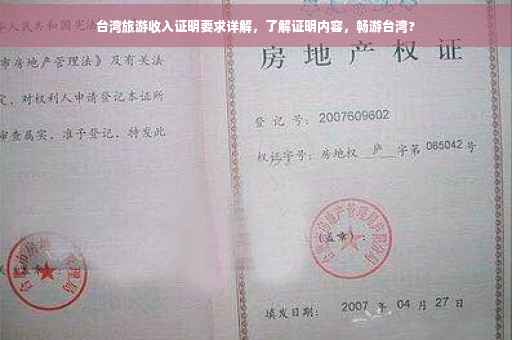 台湾旅游收入证明要求详解，了解证明内容，畅游台湾？
人民共和国宪法
市房地产管理法》及有关法
定，对权利人申请登记本证所
审查属实，准予登记，特发此
房地产权证
登记号：2007609602
权证字号：房地权 庐 字第 065042 号
(盖章)：
填发日期：2007 年 04 月 27 日